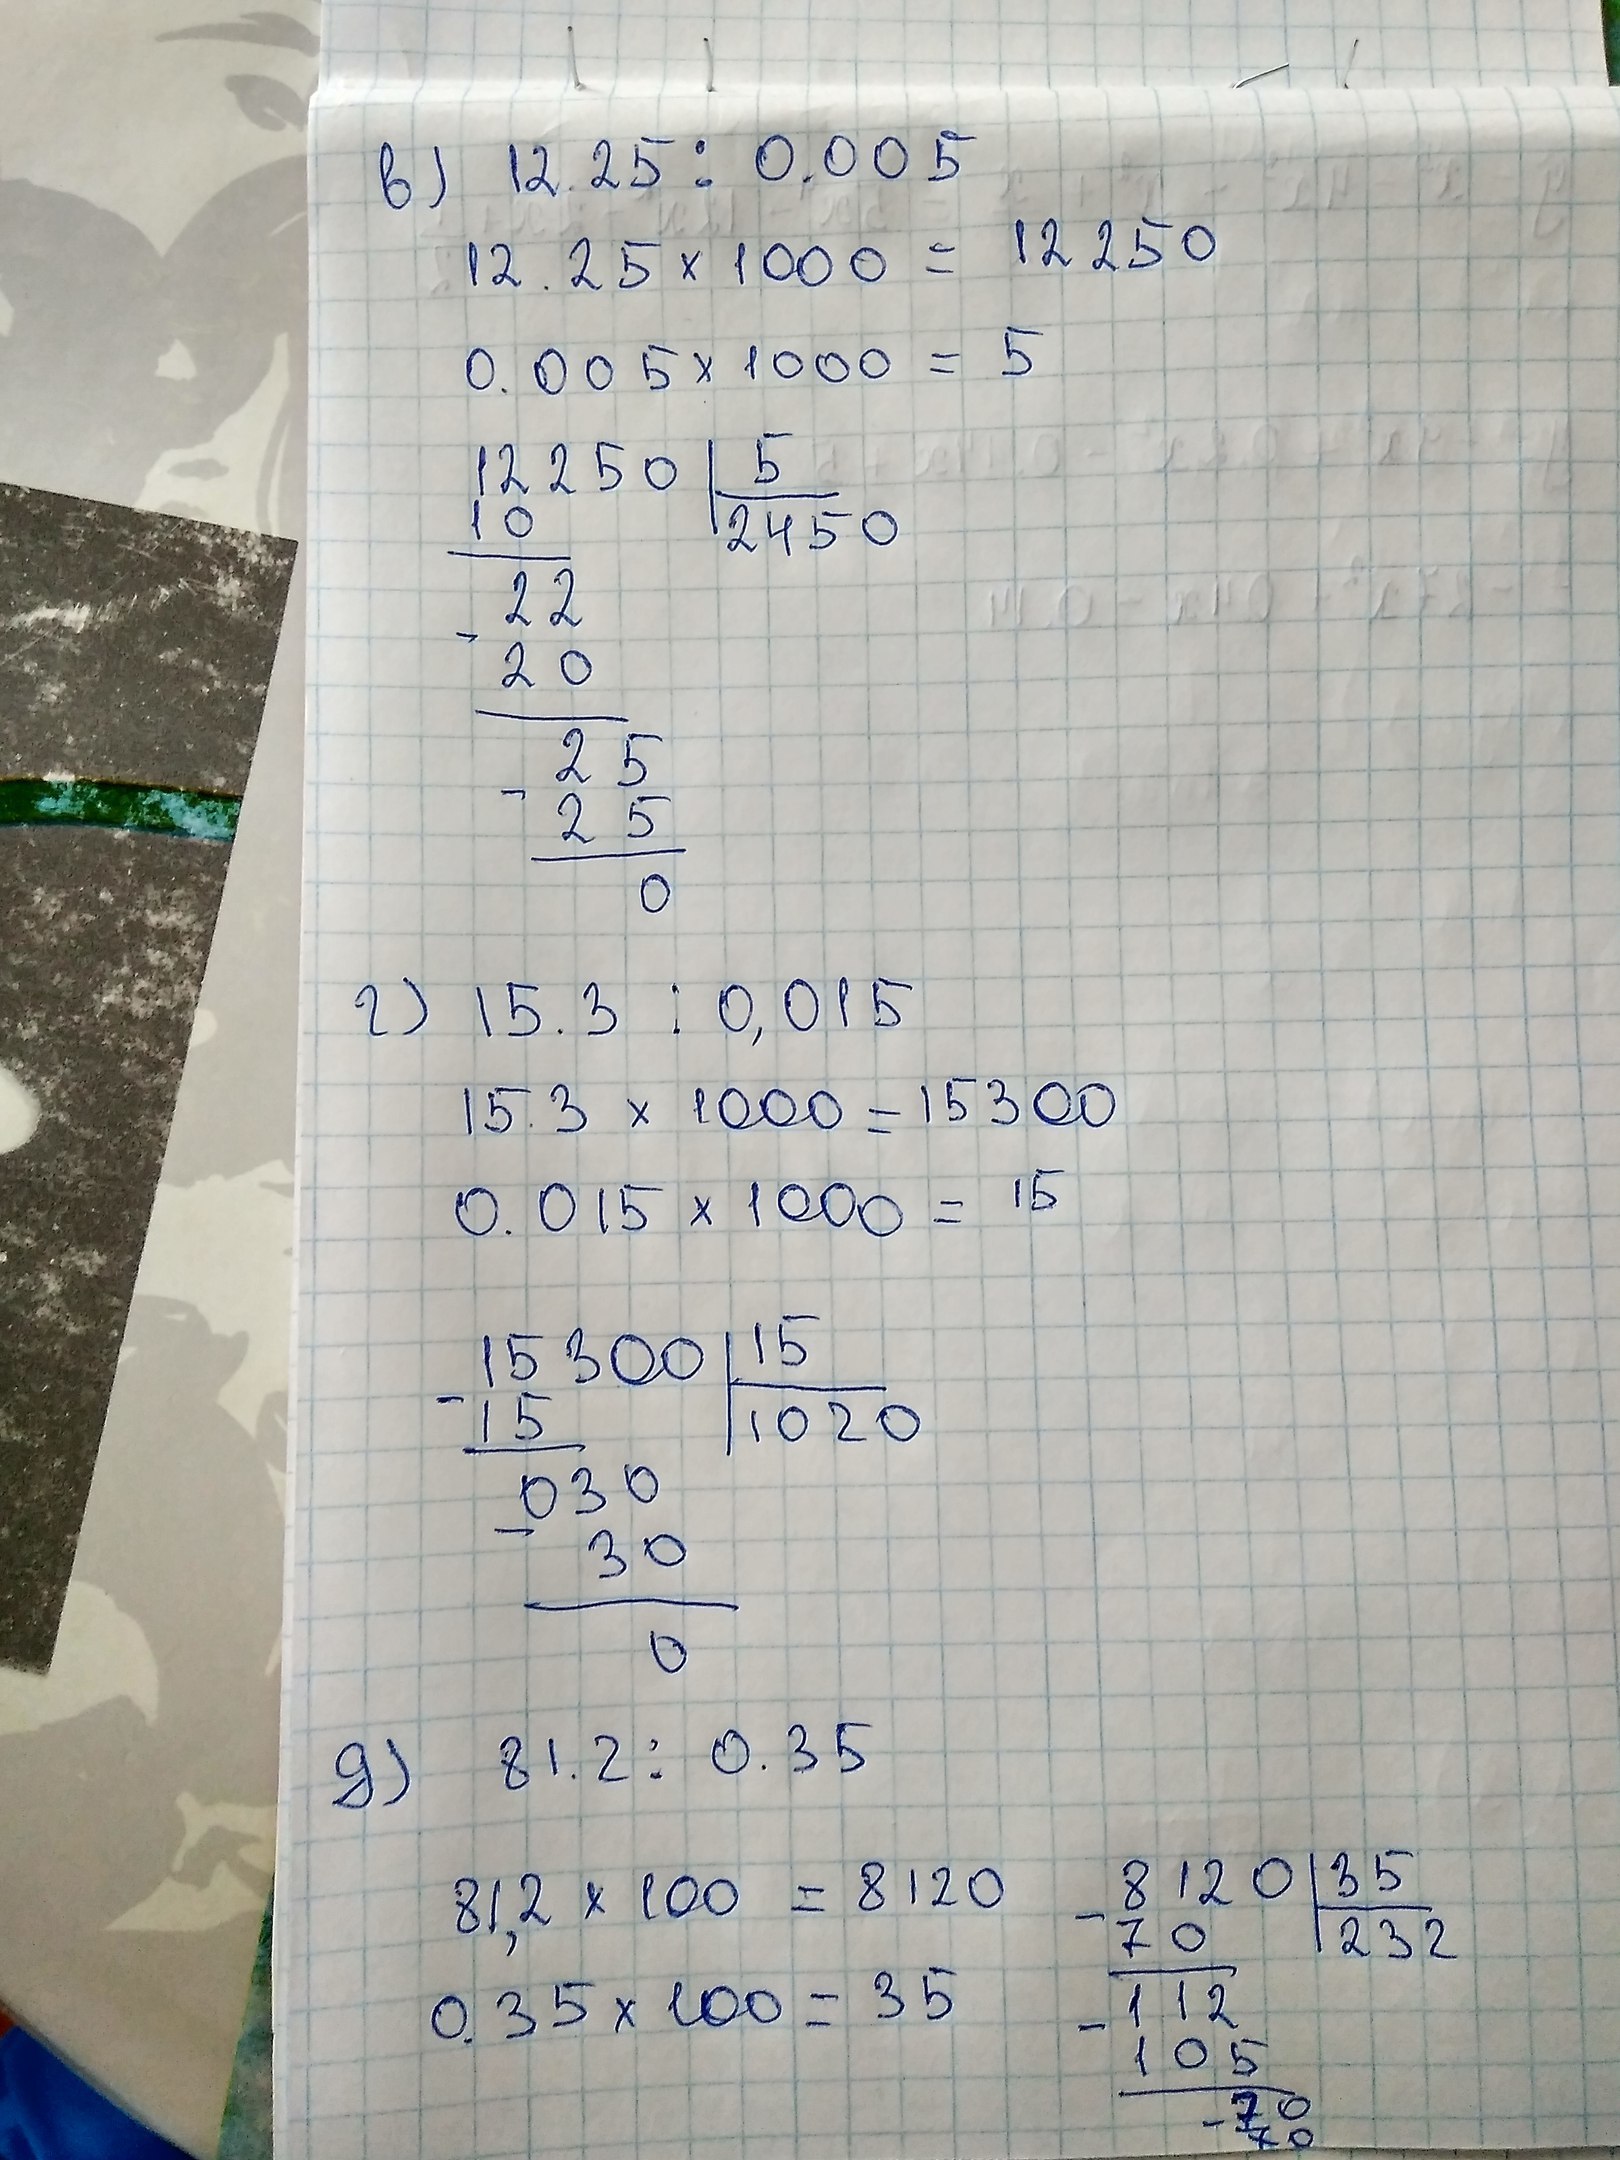 в) 12.25 : 0.005
12.25 × 1000 = 12250
0.005 × 1000 = 5
12250 | 5
10 | 2450
22
- 20
25
- 25
0
г) 15.3 : 0,015
15.3 × 1000 = 15300
0.015 × 1000 = 15
15300 | 15
- 15 | 1020
030
- 30
0
д) 81.2 : 0.35
81,2 × 100 = 8120
0.35 × 100 = 35
8120 | 35
- 70 | 232
112
- 105
70
- 70